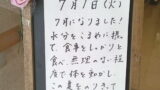 7月1日(火)
7月になりました!
水分をこまめに摂っ
て、食事をしっかりと
食べ、無理のない程
度で体を動かし、
この夏をのりきって